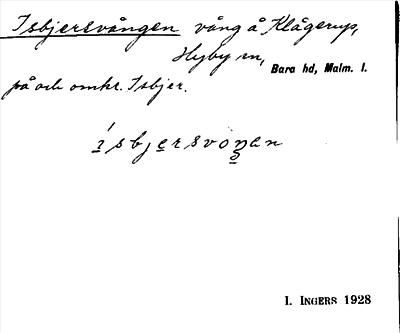 Isbjersvången vång å Klågerup,
Hyby sn, Bara hd, Malm. l.
på och omkr. Isbjer.
ísbjersvoŋen
I. INGERS 1928